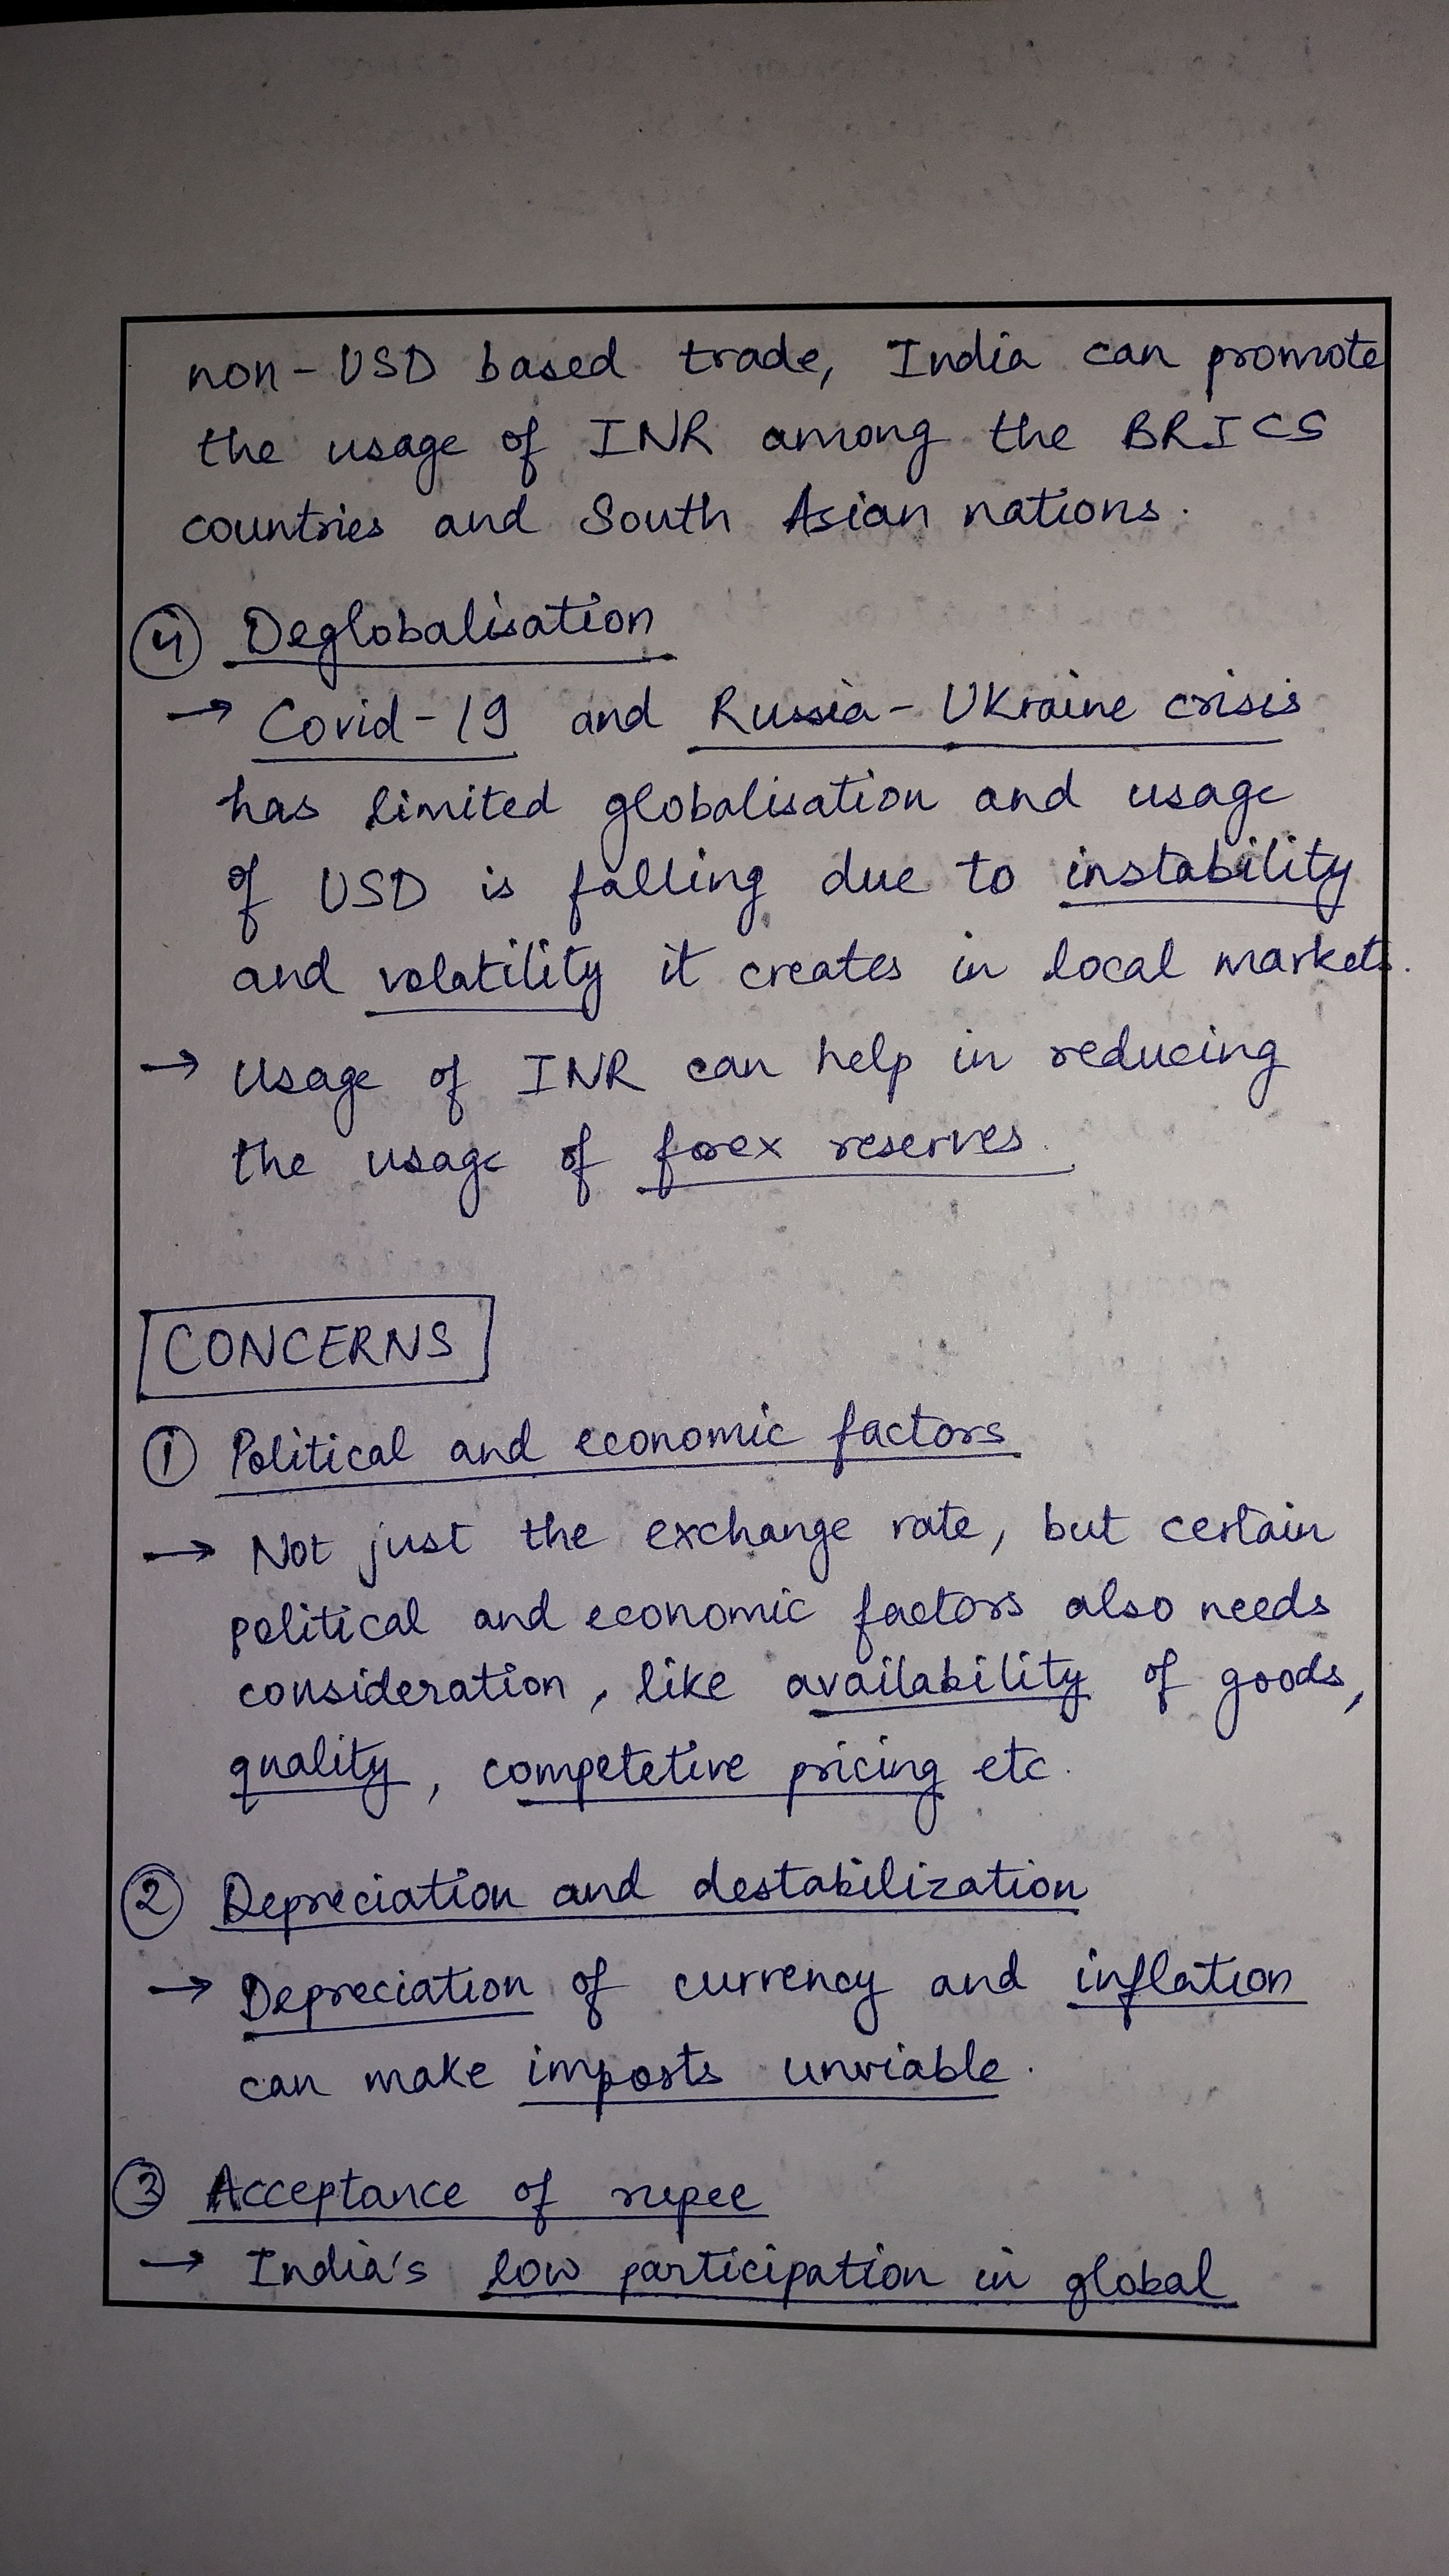 non-USD based trade, India can promote
the usage of INR among the BRICS
countries and South Asian nations.
4 Deglobalisation
→ Covid-19 and Russia-Ukraine crisis
has limited globalisation and usage
of USD is falling due to instability
and volatility it creates in local markets.
→ Usage of INR can help in reducing
the usage of forex reserves.
CONCERNS
1 Political and economic factors
→ Not just the exchange rate, but certain
political and economic factors also needs
consideration, like availability of goods,
quality, competetive pricing etc.
2 Depreciation and destabilization
→ Depreciation of currency and inflation
can make imports unviable.
3 Acceptance of rupee
→ India's low participation in global